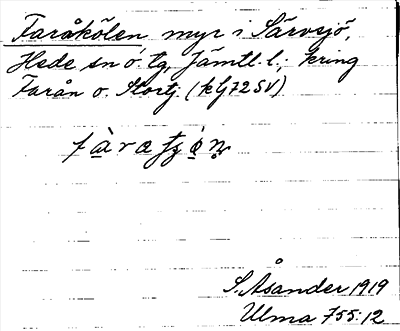 Faråkölen myr i Särvsjö,
Hede sn o. tg, Jämtl. l.; kring
Farån o. Stortj. (kbl 72 SV)
S. Åsander 1919
Ulma 755:12